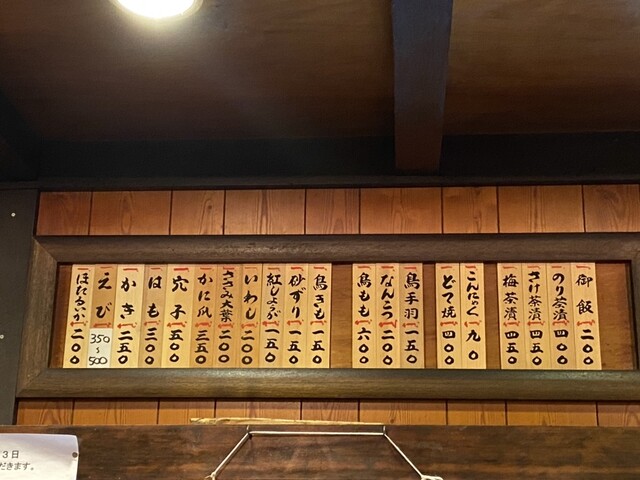 御飯 二〇〇
のり茶漬 四〇〇
さけ茶漬 四五〇
梅茶漬 四五〇
こんにゃく 九〇
どて焼 四〇〇
鳥手羽 三五〇
なんこつ 二〇〇
鳥もも 六〇〇
鳥きも 一五〇
砂ずり 一五〇
紅しょうが 一五〇
いわし 二〇〇
ささみ大葉 二〇〇
かに爪 三五〇
穴子 五〇〇
はも 三〇〇
かき 二五〇
えび 350～500
ほたるいか 二〇〇
3日
だきます。